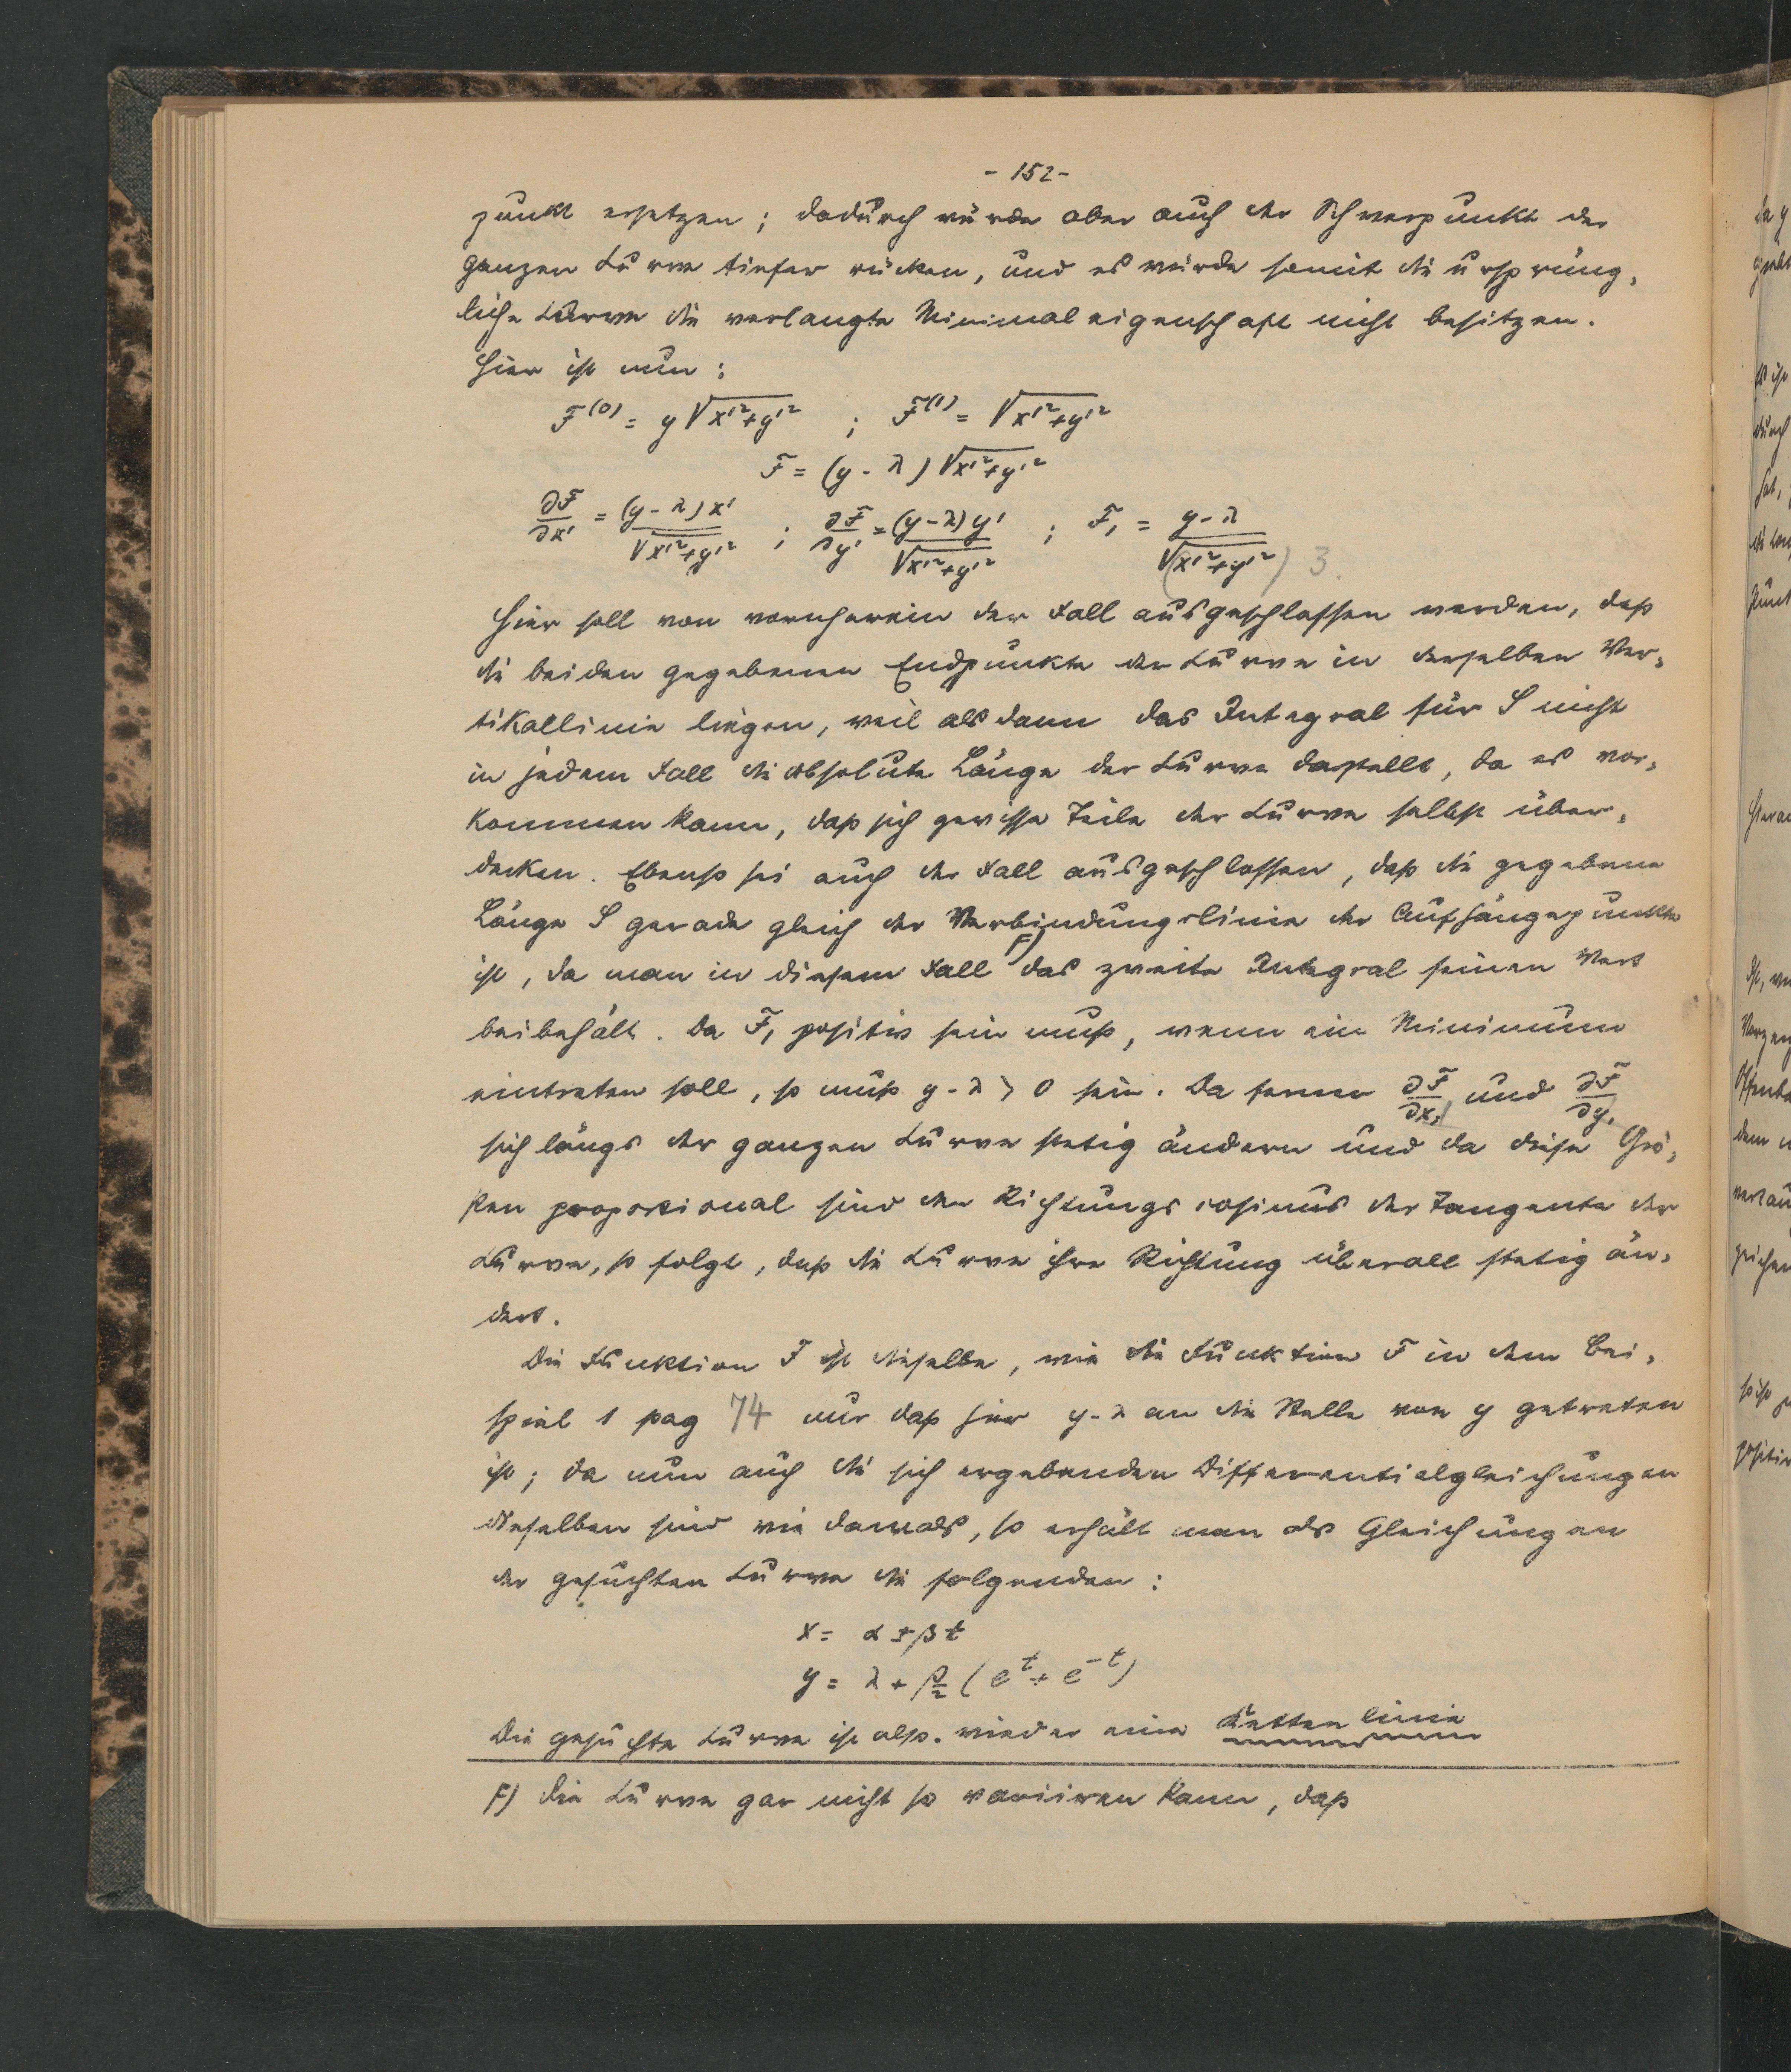 - 152 -
punkt ersetzen; dadurch würde aber auch der Schwerpunkt der
ganzen Kurve tiefer rücken, und es würde somit die ursprüng-
liche Kurve die verlangte Minimaleigenschaft nicht besitzen.
Hier ist nun:
F^(0) = y √(x'²+y'²) ; F^(1) = √(x'²+y'²)
F = (y - λ) √(x'²+y'²)
∂F/∂x' = (y-λ)x'/√(x'²+y'²) ; ∂F/∂y' = (y-λ)y'/√(x'²+y'²) ; F₁ = y-λ/√(x'²+y'²)3.
Hier soll von vornherein der Fall ausgeschlossen werden, daß
die beiden gegebenen Endpunkte der Kurve in derselben Ver-
tikallinie liegen, weil alsdann das Integral für S nicht
in jedem Fall die absolute Länge der Kurve darstellt, da es vor-
kommen kann, daß sich gewisse Teile der Kurve selbst über-
decken. Ebenso sei auch der Fall ausgeschlossen, daß die gegebene
Länge S gerade gleich der Verbindungslinie der Aufhängepunkte
ist, da man in diesem Fall F) das zweite Integral seinen Wert
beibehält. Da F₁ positiv sein muß, wenn ein Minimum
eintreten soll, so muß y - λ > 0 sein. Da ferner ∂F/∂x' und ∂F/∂y'
sich längs der ganzen Kurve stetig ändern und da diese Grö-
ßen proportional sind den Richtungscosinus der Tangente der
Kurve, so folgt, daß die Kurve ihre Richtung überall stetig än-
dert.
Die Funktion F ist dieselbe, wie die Funktion F in dem Bei-
spiel 1 pag 74 nur daß hier y-λ an die Stelle von y getreten
ist; da nun auch die sich ergebenden Differentialgleichungen
dieselben sind wie damals, so erhält man als Gleichungen
der gesuchten Kurve die folgenden:
x = α ± βt
y = λ + β/2 (e^t + e^-t)
Die gesuchte Kurve ist also wieder eine Kettenlinie
F) die Kurve gar nicht so variiren kann, daß